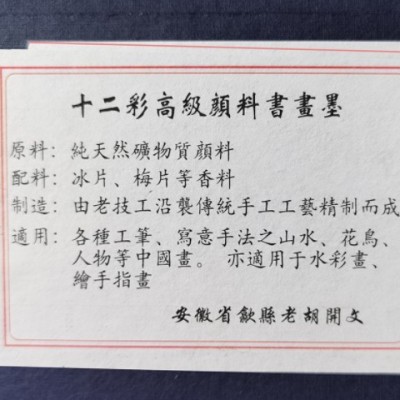 十二彩高級顔料書畫墨
原料：純天然礦物質顔料
配料：冰片、梅片等香料
制造：由老技工沿襲傳統手工工藝精制而成
適用：各種工筆、寫意手法之山水、花鳥、
人物等中國畫。亦適用于水彩畫、
繪手指畫
安徽省歙縣老胡開文